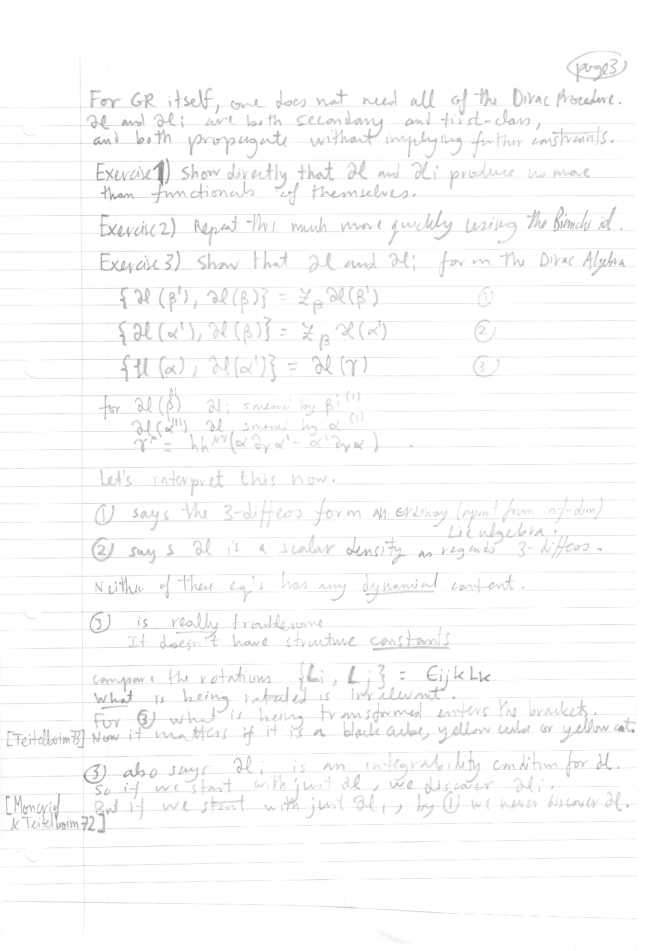 page 3
For GR itself, one does not need all of the Dirac Procedure.
ℋ and ℋi are both secondary and first-class,
and both propagate without implying further constraints.
Exercise 1) Show directly that ℋ and ℋi produce no more
than functionals of themselves.
Exercise 2) Repeat this much more quickly using the Bianchi id.
Exercise 3) Show that ℋ and ℋi form the Dirac Algebra
{ℋ(β'), ℋ(β)} = £β ℋ(β') ①
{ℋ(α'), ℋ(β)} = £β ℋ(α') ②
{ℋ(α), ℋ(α')} = ℋ(γ) ③
for ℋ(β) ℋi smeared by βi(')
ℋ(α(')) ℋ smeared by α(')
γμ = hhμν(α∂να' - α'∂να).
Let's interpret this now.
① says the 3-diffeos form an ordinary (apart from inf-dim)
Lie algebra.
② says ℋ is a scalar density as regards 3-diffeos.
Neither of these eq's has any dynamical content.
③ is really troublesome
It doesn't have structure constants
Compare the rotations {Li, Lj} = εijk Lk
What is being rotated is irrelevant.
For ③ what is being transformed enters the brackets.
[Teitelboim 73] Now it matters if it is a black cube, yellow cube or yellow cat.
③ also says ℋi is an integrability condition for ℋ.
So if we start with just ℋ, we discover ℋi.
[Moncrief & Teitelboim 72] But if we start with just ℋi, by ① we never discover ℋ.